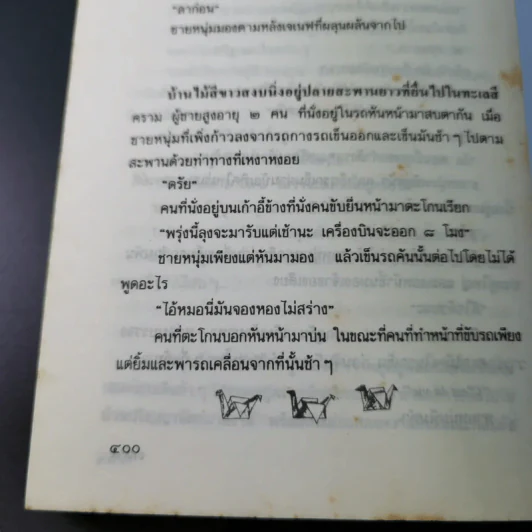 "ลาก่อน"
ชายหนุ่มมองตามหลังเจเนฟที่ผลุนผลันจากไป
บ้านไม้สีขาวสงบนิ่งอยู่ปลายสะพานยาวที่ยื่นไปในทะเลสี
คราม ผู้ชายสูงอายุ ๒ คน ที่นั่งอยู่ในรถหันหน้ามาสบตากัน เมื่อ
ชายหนุ่มที่เพิ่งก้าวลงจากรถกางรถเข็นออกและเข็นมันช้า ๆ ไปตาม
สะพานด้วยท่าทางที่เหงาหงอย
"ดรัย"
คนที่นั่งอยู่บนเก้าอี้ข้างที่นั่งคนขับยื่นหน้ามาตะโกนเรียก
"พรุ่งนี้ลุงจะมารับแต่เช้านะ เครื่องบินจะออก ๘ โมง"
ชายหนุ่มเพียงแต่หันมามอง แล้วเข็นรถคันนั้นต่อไปโดยไม่ได้
พูดอะไร
"ไอ้หมอนี่มันจองหองไม่สร่าง"
คนที่ตะโกนบอกหันหน้ามาบ่น ในขณะที่คนที่ทำหน้าที่ขับรถเพียง
แต่ยิ้มและพารถเคลื่อนจากที่นั้นช้า ๆ
๔๐๐